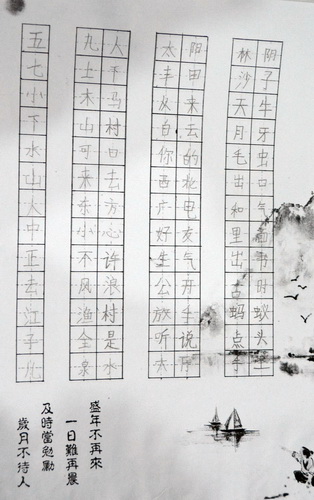 五七小下水山火中正去江子
九上木山可来东小不风渔全泉
人下马村白去方心许浪村是水
太丰反自你西广好生公放听大
阳田来去的电友气开手说
林沙天月毛出和里出古蚂点手
阴子牛牙虫白气时蚁头里
盛年不再來
一日難再晨
及時當勉勵
歲月不待人